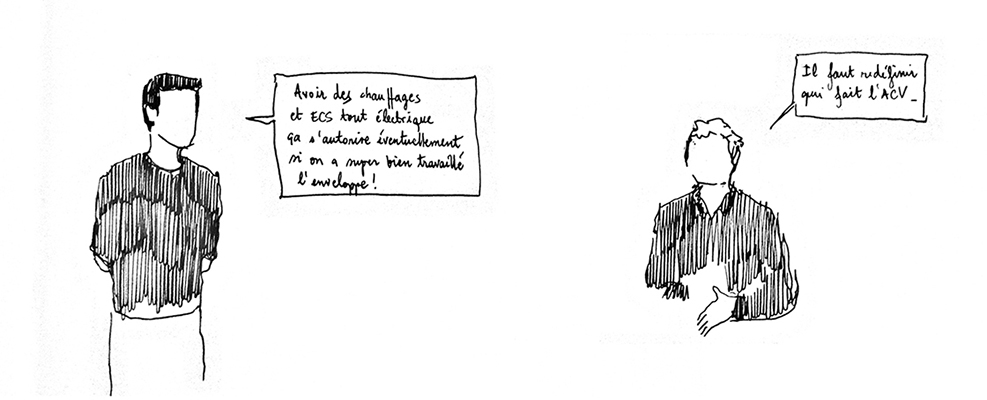 Avoir des chauffages
et ECS tout électrique
ça s'autorise éventuellement
si on a super bien travaillé
l'enveloppe !
Il faut redéfinir
qui fait l'ACV_